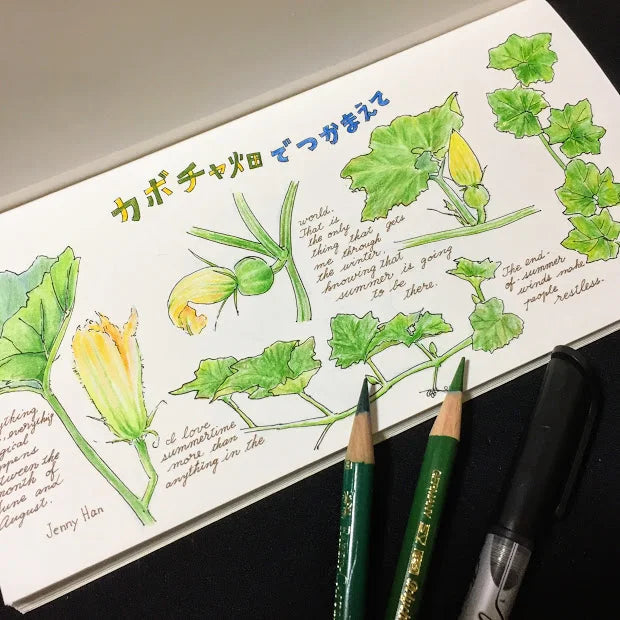 カボチャ畑でつかまえて
everything
magical
happens
between the
month of
June and
August.
Jenny Han
I love
summertime
more than
anything in the
world.
That is
the only
thing that gets
me through
the winter.
knowing that
summer is going
to be
there.
The end.
of summer
winds make
people
restless.